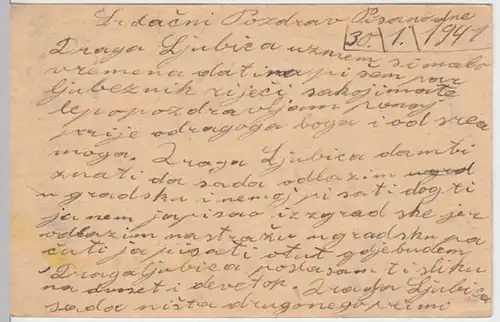 Srdačni Pozdrav Pisano dne
30. \ 1. \ 1941
Draga Ljubica uzmem si malo
vremena dati na pi sem par
ljubeznih riječi sa kojima te
lepo pozdravljam ponaj
prije od dragoga boga i od srca
moga. Draga Ljubica dam ti
znati da sada odlazim
u gradsku i nemoj pi sati dog ti
ja nem japisao iz grad ske jer
odlazim na stražu u gradsku pa
ču ti ja pisati otut gdje budem
Draga Ljubica poslasam ti sliku
na dvaset i devetog. Draga Ljubica
sada ništa drugo nego primi